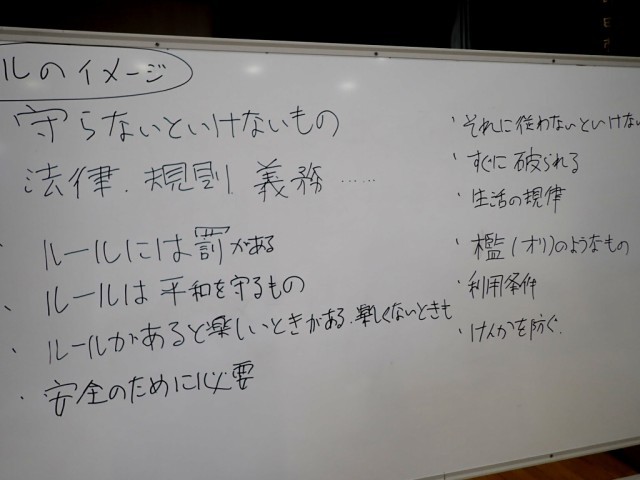 ルのイメージ
守らないといけないもの
法律、規則、義務……
・ルールには罰がある
・ルールは平和を守るもの
・ルールがあると楽しいときがある、楽しくないときも
・安全のために必要
・それに従わないといけない
・すぐに破られる
・生活の規律
・檻(オリ)のようなもの
・利用条件
・けんかを防ぐ.